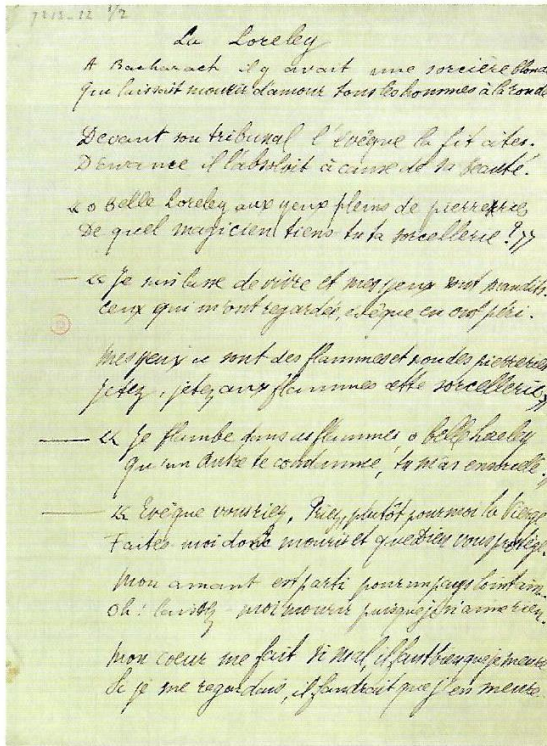 7215-22 1/2
La Loreley
A Bacharach il y avait une sorcière blonde
Qui laissait mourir d'amour tous les hommes à la ronde
Devant son tribunal l'évêque la fit citer.
D'avance il l'absolvit à cause de sa beauté.
« O belle Loreley aux yeux pleins de pierreries
De quel magicien tiens tu ta sorcellerie ? »
— « Je suis lasse de vivre et mes yeux sont maudits.
Ceux qui m'ont regardée, évêque en ont péri.
Mes yeux ce sont des flammes et non des pierreries
jetez, jetez aux flammes cette sorcellerie »
— « Je flambe dans ces flammes ô belle Loreley
Qu'un autre te condamne, tu m'as ensorcelé.
— « Evêque vous riez, Priez plutôt pour moi la Vierge
Faites moi donc mourir et que Dieu vous protège.
Mon amant est parti pour un pays lointain.
Oh ! moi mourir puisque je n'aime rien.
Mon coeur me fait si mal, il faut bien que je meure
Si je me regardais, il faudrait que j'en meure.